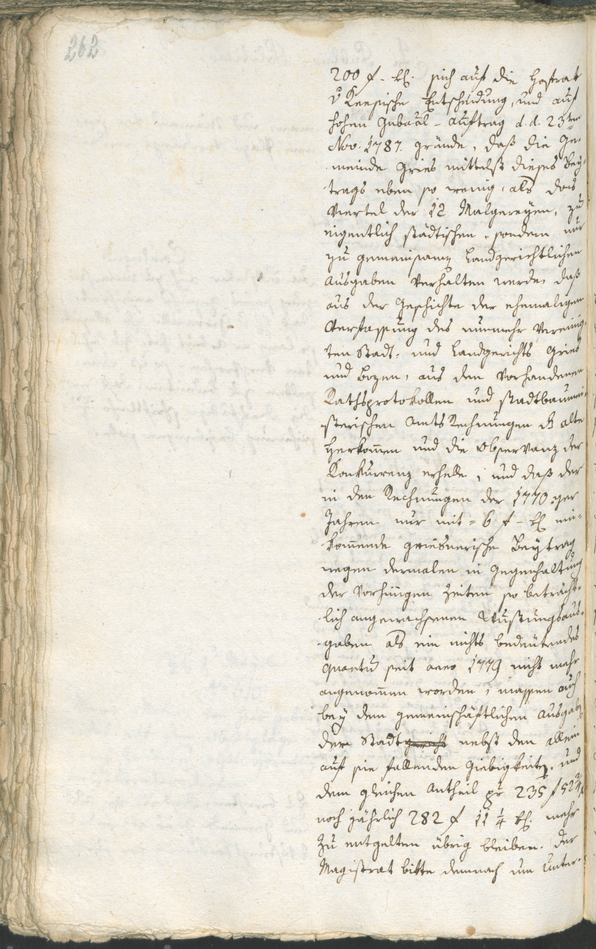 262
200 f - xr. sich auf die Hofrat
v Keepische Entscheidung, und auf
hohen Gub̅al-Auftrag d. d. 23ten
Nov. 1787 gründe, daß die Ge-
meinde Gries mittelst dieses Bey-
trags eben so wenig, als das
Viertel der 12 Malgreyen, zu
eigentlich städtischen, sondern nur
zu gemeinsamen Landgerichtlichen
Ausgaben verhalten werde, daß
aus der Geschichte der ehemaligen
Verfassung des nunmehr vereinig-
ten Stadt- und Landgerichts Gries
und Bozen, aus den vorhandenen
Rathsprotokollen und Stadtbaumei-
sterischen Amts Rechnungen d alte
Herkom̅en und die Observanz der
Konkurrenz erhelle, und daß der
in den Rechnungen der 1770.ger
Jahren nur mit - 6 f - xr ein-
kom̅ende griesnerische Beytrag
wegen dermalen in Gegenhaltung
der vorhinigen Zeiten so beträcht-
lich angewachsenen Rüstungsaus-
gaben als ein nichts bedeutendes
Quantu̅ seit anno 1779 nicht mehr
angenom̅en worden, massen auch
bey dem gemeinschäftlichen Ausgaben
der Stadt nebst den allein
auf sie fallenden Giebigkeiten, und
dem gleichen Antheil pr 235 f 52
noch jährlich 282 f 11 ¼ xr. mehr
zu entgelten übrig bleiben. Der
Magistrat bitte demnach um Unter-